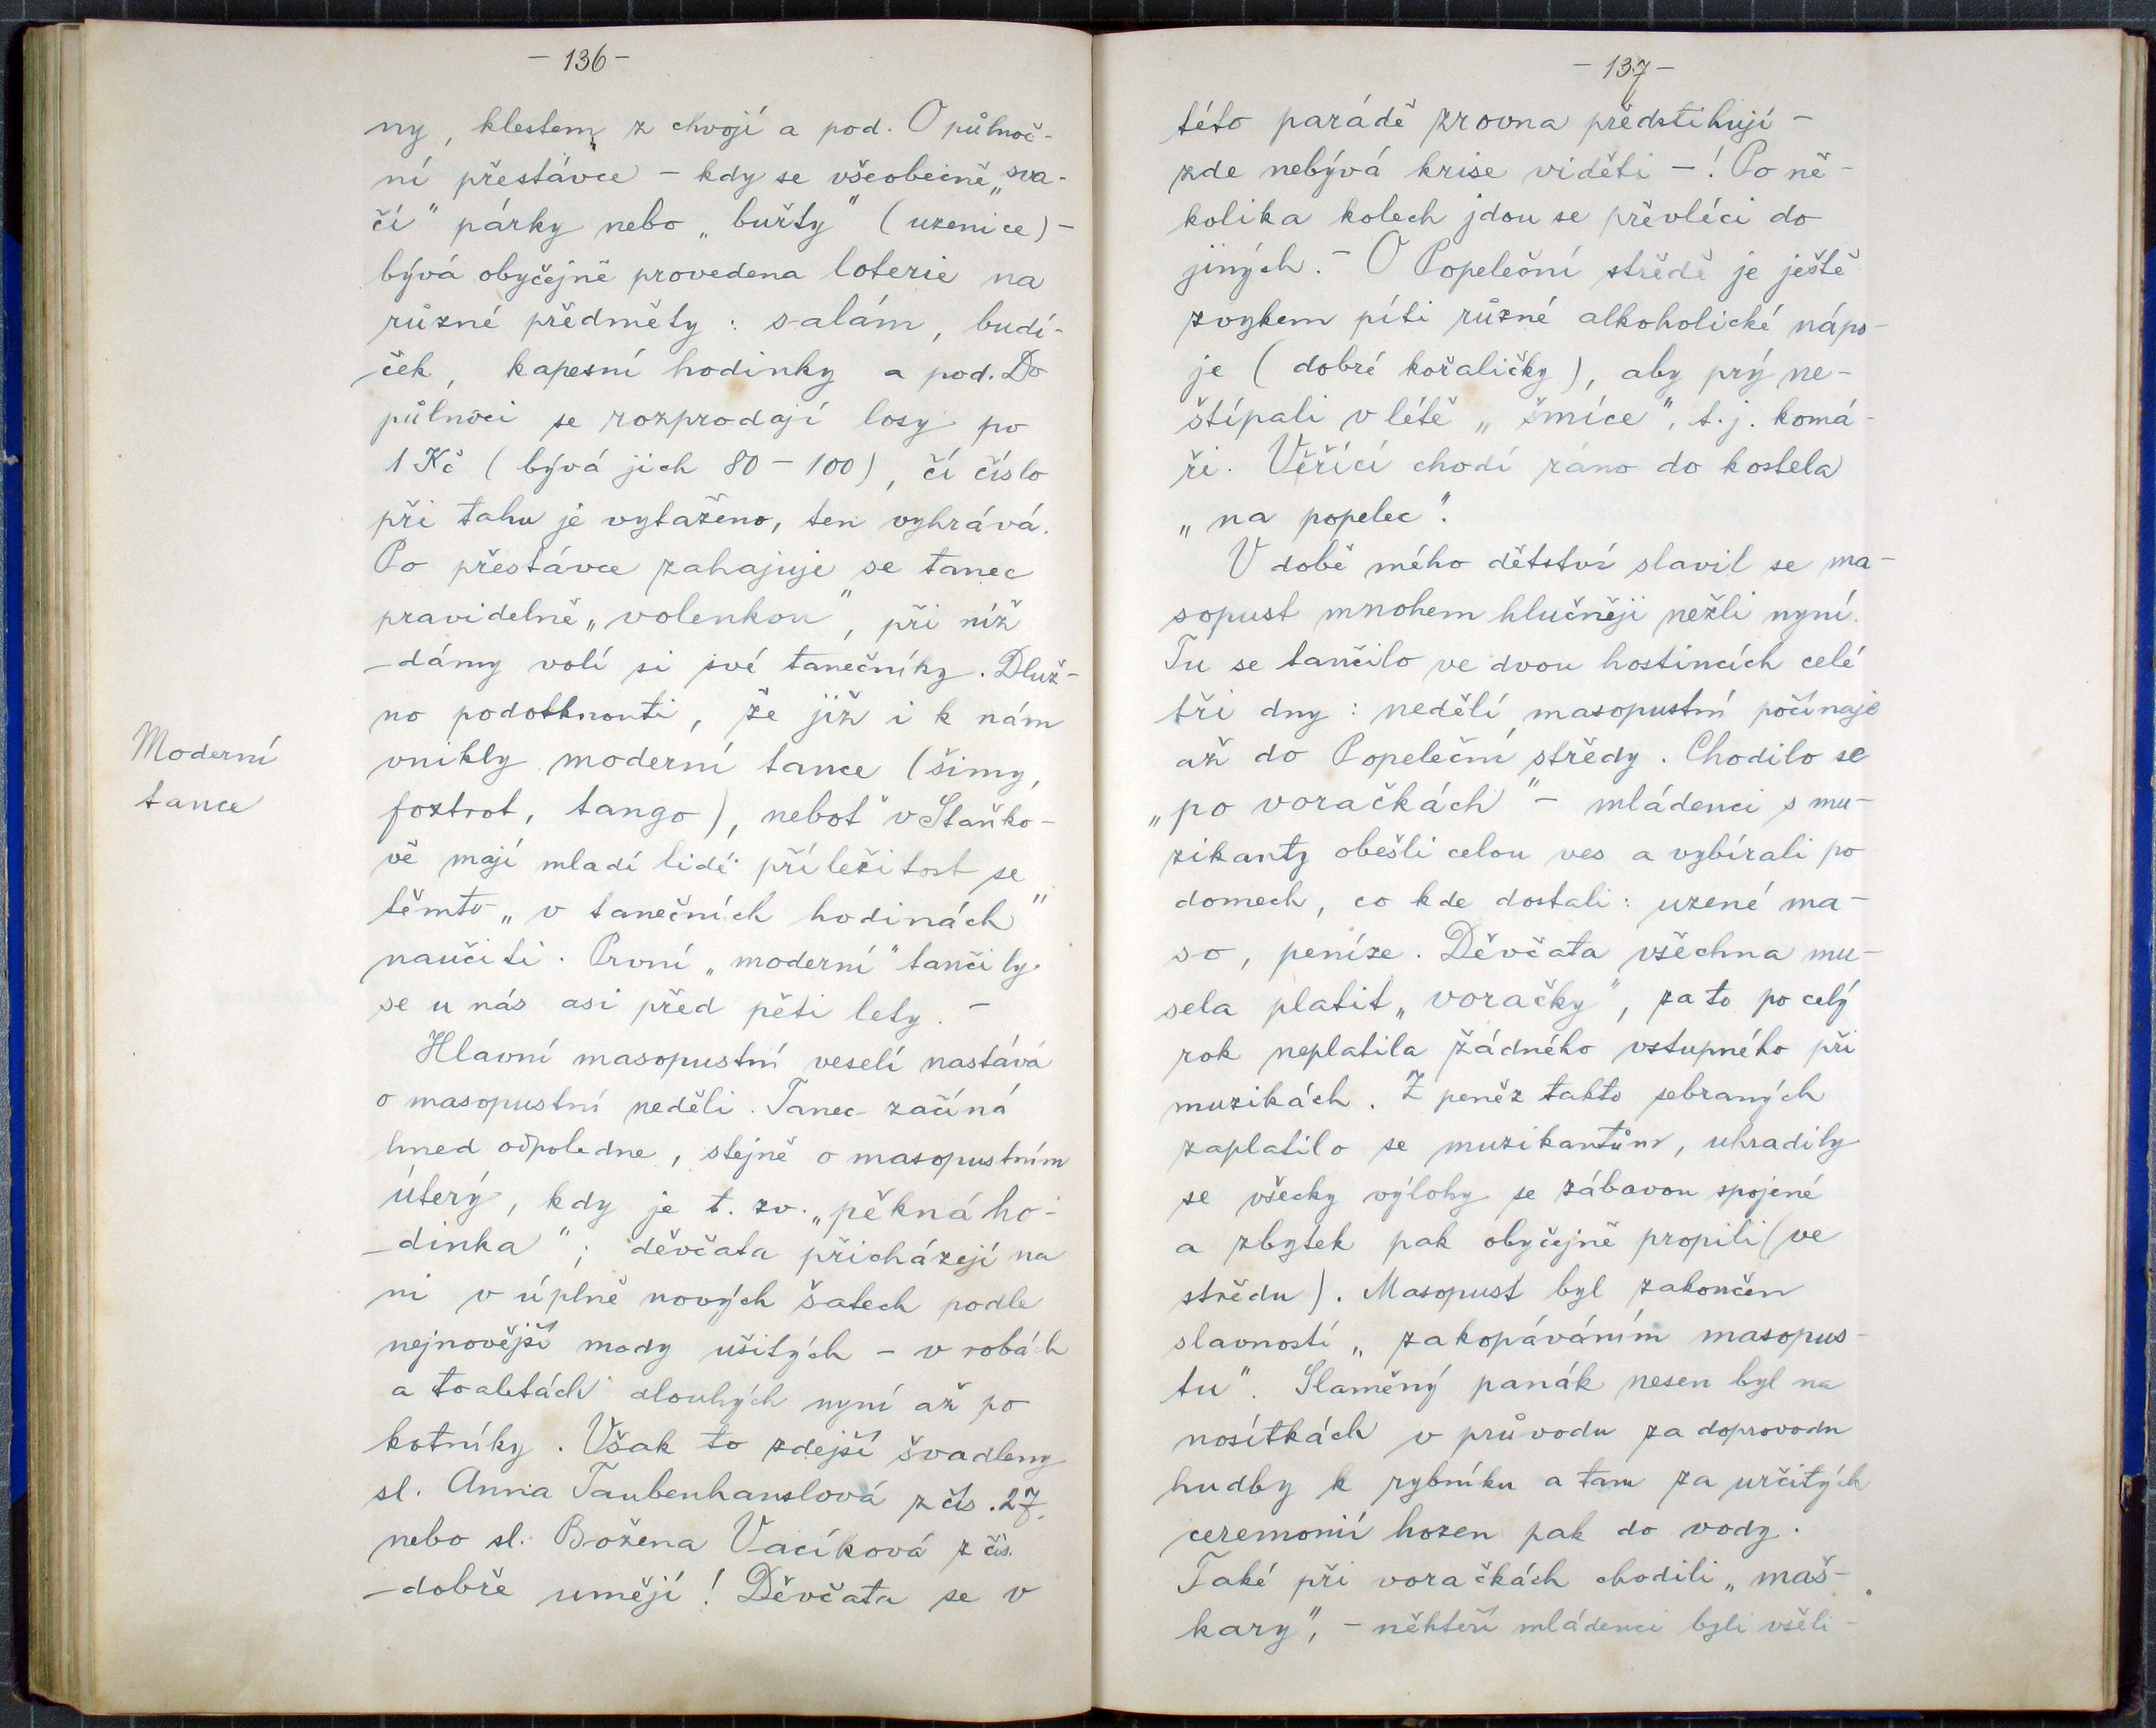 - 136 -
ny, klestem z chvojí a pod. O půlnoč-
ní přestávce - kdy se všeobecně „sva-
čí" párky nebo „buřty" (uzenice) -
bývá obyčejně provedena loterie na
různé předměty: salám, budí-
ček, kapesní hodinky a pod. Do
půlnoci se rozprodají losy po
1 Kč (bývá jich 80 - 100), čí číslo
při tahu je vytaženo, ten vyhrává.
Po přestávce zahajuje se tanec
pravidelně „volenkou", při níž
dámy volí si své tanečníky. Dluž-
no podotknouti, že již i k nám
Moderní
tance
vnikly moderní tance (šimy,
foxtrot, tango), neboť v Staňko-
vě mají mladí lidé příležitost se
těmto „v tanečních hodinách"
naučiti. První „moderní" tančily
se u nás asi před pěti lety. -
Hlavní masopustní veselí nastává
o masopustní neděli. Tanec začíná
hned odpoledne, stejně o masopustním
úterý, kdy je t. zv. „pěkná ho-
dinka"; děvčata přicházejí na
ni v úplně nových šatech podle
nejnovější mody ušitých - v robách
a toaletách dlouhých nyní až po
kotníky. Však to zdejší švadleny
sl. Anna Taubenhanslová z čís. 27.
nebo sl. Božena Vacíková z čís.
dobře umějí! Děvčata se v
- 137 -
této parádě zrovna předstihují -
zde nebývá krise viděti - ! Po ně-
kolika kolech jdou se převléci do
jiných. - O Popeleční středě je ještě
zvykem píti různé alkoholické nápo-
je (dobré kořaličky), aby prý ne-
štípali v létě „šmíce", t. j. komá-
ři. Věřící chodí ráno do kostela
„na popelec".
V době mého dětství slavil se ma-
sopust mnohem hlučněji nežli nyní.
Tu se tančilo ve dvou hostincích celé
tři dny: nedělí masopustní počínaje
až do Popeleční středy. Chodilo se
„po voračkách" - mládenci s mu-
zikanty obešli celou ves a vybírali po
domech, co kde dostali: uzené ma-
so, peníze. Děvčata všechna mu-
sela platit „voračky", za to po celý
rok neplatila žádného vstupného při
muzikách. Z peněz takto sebraných
zaplatilo se muzikantům, uhradily
se všecky výlohy se zábavou spojené
a zbytek pak obyčejně propili (ve
středu). Masopust byl zakončen
slavností „zakopáváním masopus-
tu". Slaměný panák nesen byl na
nosítkách v průvodu za doprovodu
hudby k rybníku a tam za určitých
ceremonií hozen pak do vody.
Také při voračkách chodili „maš-
kary", - někteří mládenci byli všeli-